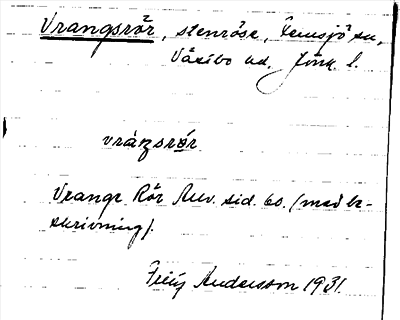 Vrangsrör, stenröse, Femsjö sn,
Västbo hd. Jönk. l.
vráŋsrör
Vrangs Rör Ruv. sid. 60. (med be-
skrivning).
Andersson 1931.